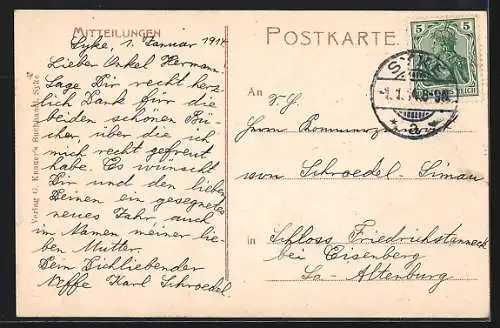 MITTEILUNGEN
POSTKARTE
Syke, 1. Januar 1914
Lieber Onkel Hermann.
Sage Dir recht herz-
lich Dank für die
beiden schönen Bü-
cher, über die ich
mich recht gefreut
habe. Es wünscht
Dir und den lieben
Deinen ein gesegnetes
neues Jahr auch
im Namen meiner lie-
ben Mutter.
Dein Dichliebender
Neffe Karl Schroedel.
Verlag G. Knauer's Buchhandl. Syke
5 5
SYKE
1.1.14
An
Herrn Kommerzienrat
von Schroedel-Siman
in Schloss Friedrichstanneck
bei Eisenberg
Sa-Altenburg